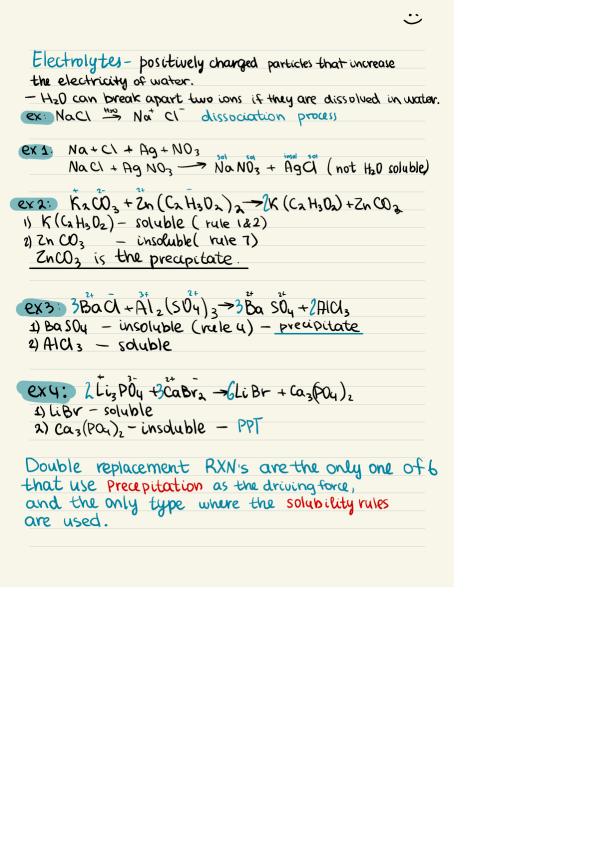 Electrolytes- positively charged particles that increase
the electricity of water.
- H₂O can break apart two ions if they are dissolved in water.
ex: NaCl →(H₂O) Na⁺ Cl⁻ dissociation process
ex 1: Na+Cl + Ag+NO₃
NaCl + AgNO₃ → NaNO₃ + AgCl (not H₂O soluble)
sol sol insol sol
ex2: K₂CO₃ + Zn(C₂H₃O₂)₂ → 2K(C₂H₃O₂) + ZnCO₃
+ 2- 2+ -
1) K(C₂H₃O₂) - soluble (rule 1&2)
2) ZnCO₃ - insoluble (rule 7)
ZnCO₃ is the precipitate.
ex3: 3BaCl + Al₂(SO₄)₃ → 3BaSO₄ + 2AlCl₃
2+ - 3+ 2+ 2+ 2-
1) BaSO₄ - insoluble (rule 4) - precipitate
2) AlCl₃ - soluble
ex4: 2Li₃PO₄ + 3CaBr₂ → 6LiBr + Ca₃(PO₄)₂
+ 3- 2+ -
1) LiBr - soluble
2) Ca₃(PO₄)₂ - insoluble - PPT
Double replacement RXN's are the only one of 6
that use Precepitation as the driving force,
and the only type where the solubility rules
are used.